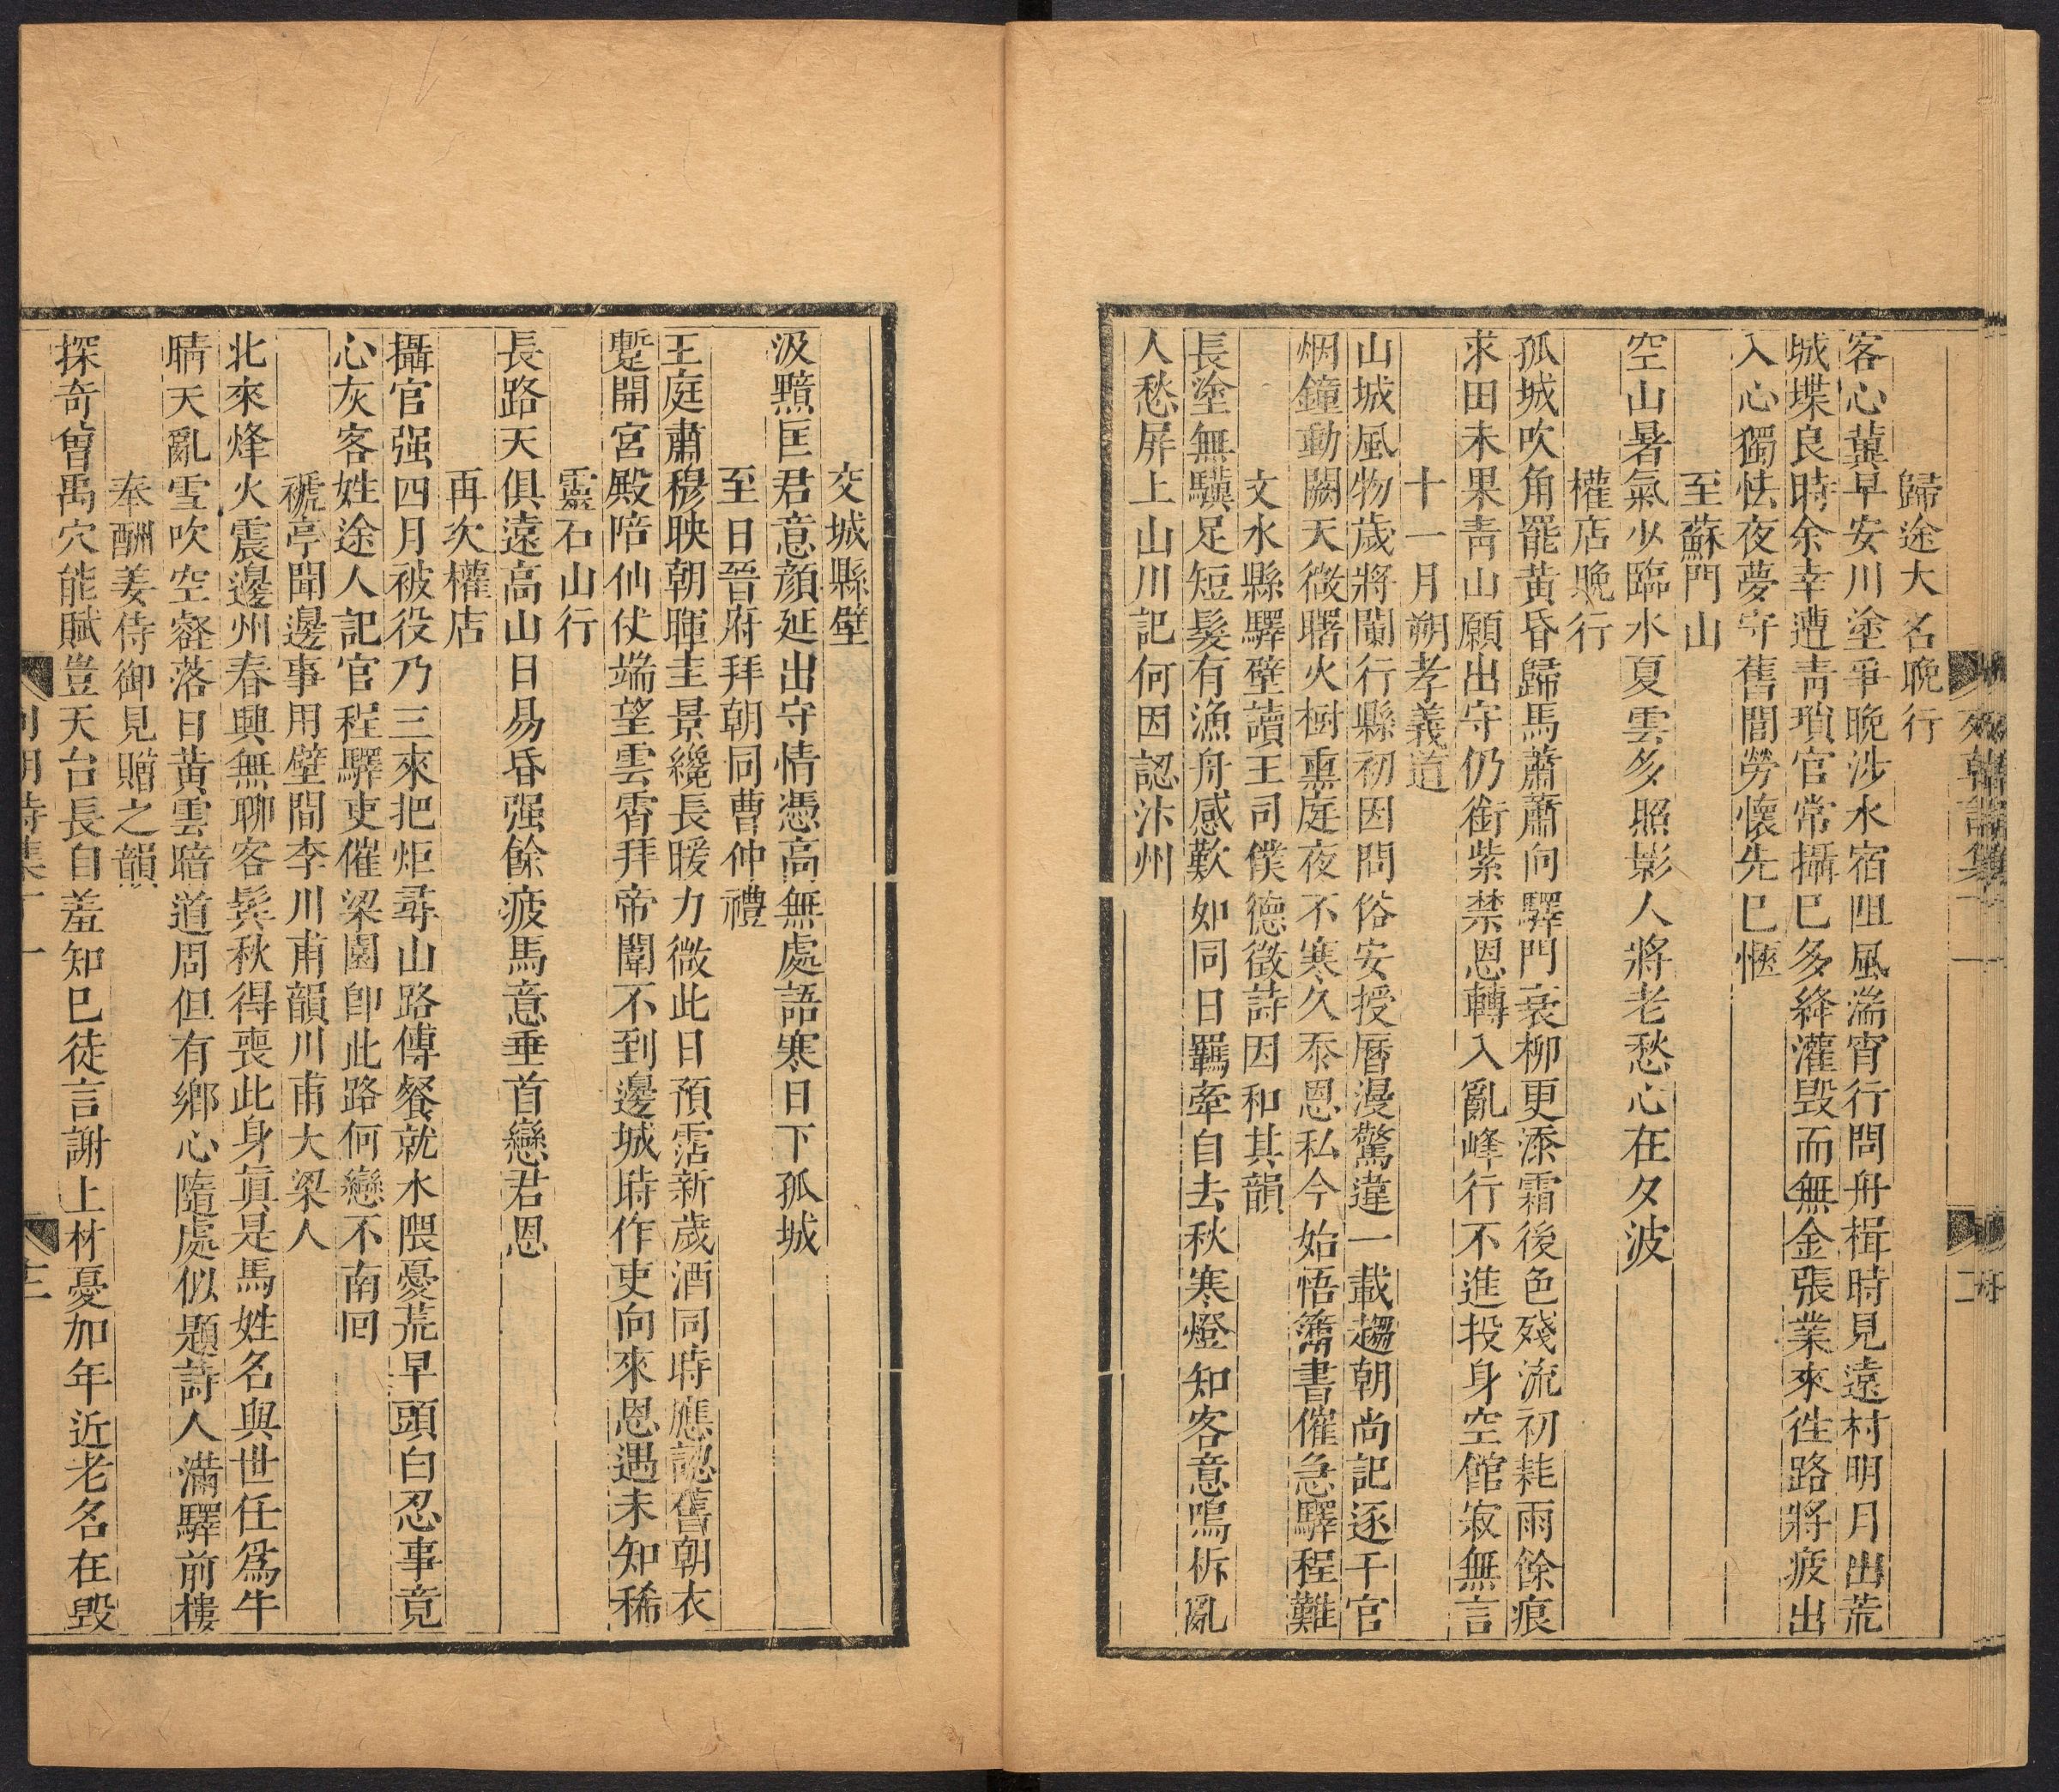 歸途大名晚行
客心蕢早安川塗爭晚涉水宿阻風湍宵行問舟楫時見遠村明月出荒
城堞良時余幸遭靑瑣官常攝巳多絳灌毀而無金張業來徃路將疲出
入心獨怯夜夢守舊閭勞懷先巳愜
至蘇門山
空山暑氣少臨水夏雲多照影人將老愁心在夕波
權店晚行
孤城吹角罷黃昏歸馬蕭蕭向驛門衰柳更添霜後色殘流初耗雨餘痕
求田未果靑山願出守仍銜紫禁恩轉入亂峰行不進投身空館寂無言
十一月朔孝義道
山城風物歲將闌行縣初因問俗安授曆漫驚違一載趨朝尚記逐千官
烟鐘動闕天微曙火樹熏庭夜不寒久忝恩私今始悟簿書催急驛程難
文水縣驛壁讀王司僕德徵詩因和其韻
長塗無驥足短髮有漁舟感歎如同日羈牽自去秋寒燈知客意鳴柝亂
人愁屏上山川記何因認汴州
交城縣壁
汲黯匡君意顏延出守情憑高無處語寒日下孤城
至日晉府拜朝同曹仲禮
王庭肅穆映朝暉圭景纔長暖力微此日預霑新歲酒同時應認舊朝衣
蹔開宮殿陪仙仗端望雲霄拜帝闈不到邊城時作吏向來恩遇未知稀
靈石山行
長路天俱遠高山日易昏强餘疲馬意垂首戀君恩
再次權店
攝官强四月被役乃三來把炬尋山路傳餐就水隈憂荒早頭白忍事竟
心灰客姓途人記官程驛吏催梁園卽此路何戀不南囘
褫亭聞邊事用壁間李川甫韻川甫大梁人
北來烽火震邊州春興無聊客鬂秋得喪此身眞是馬姓名與世任爲牛
晴天亂雪吹空礊落日黃雲暗道周但有鄉心隨處似題詩人滿驛前樓
奉酬姜侍御見贈之韻
探奇曾禹穴能賦豈天台長自羞知巳徒言謝上材憂加年近老名在毀